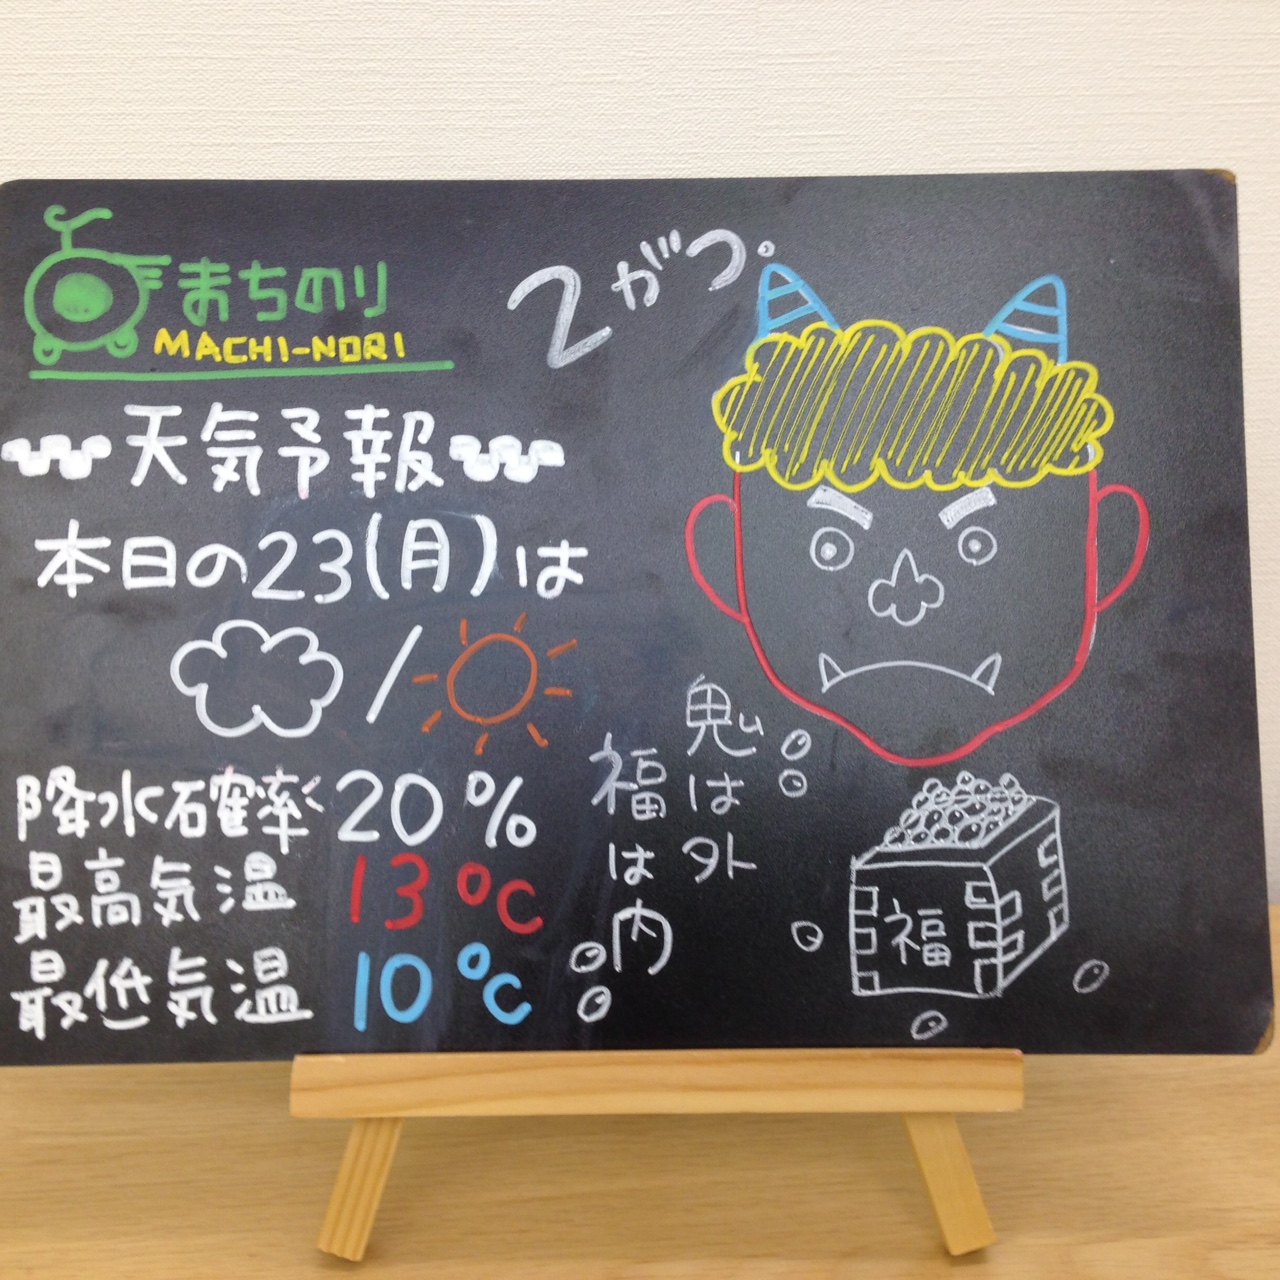 まちのり
MACHI-NORI
2がつ。
天気予報
本日の23(月)は
降水確率 20%
最高気温 13℃
最低気温 10℃
鬼は外
福は内
福